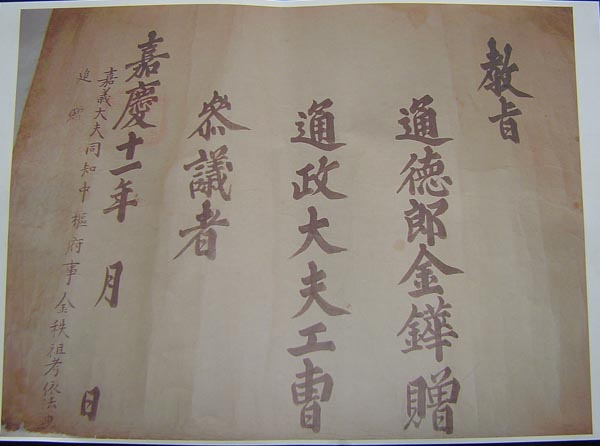 敎旨
通德郎金鏵贈
通政大夫工曹
叅議者
嘉慶十一年 月 日
嘉義大夫同知中樞府事金秩祖考依
追